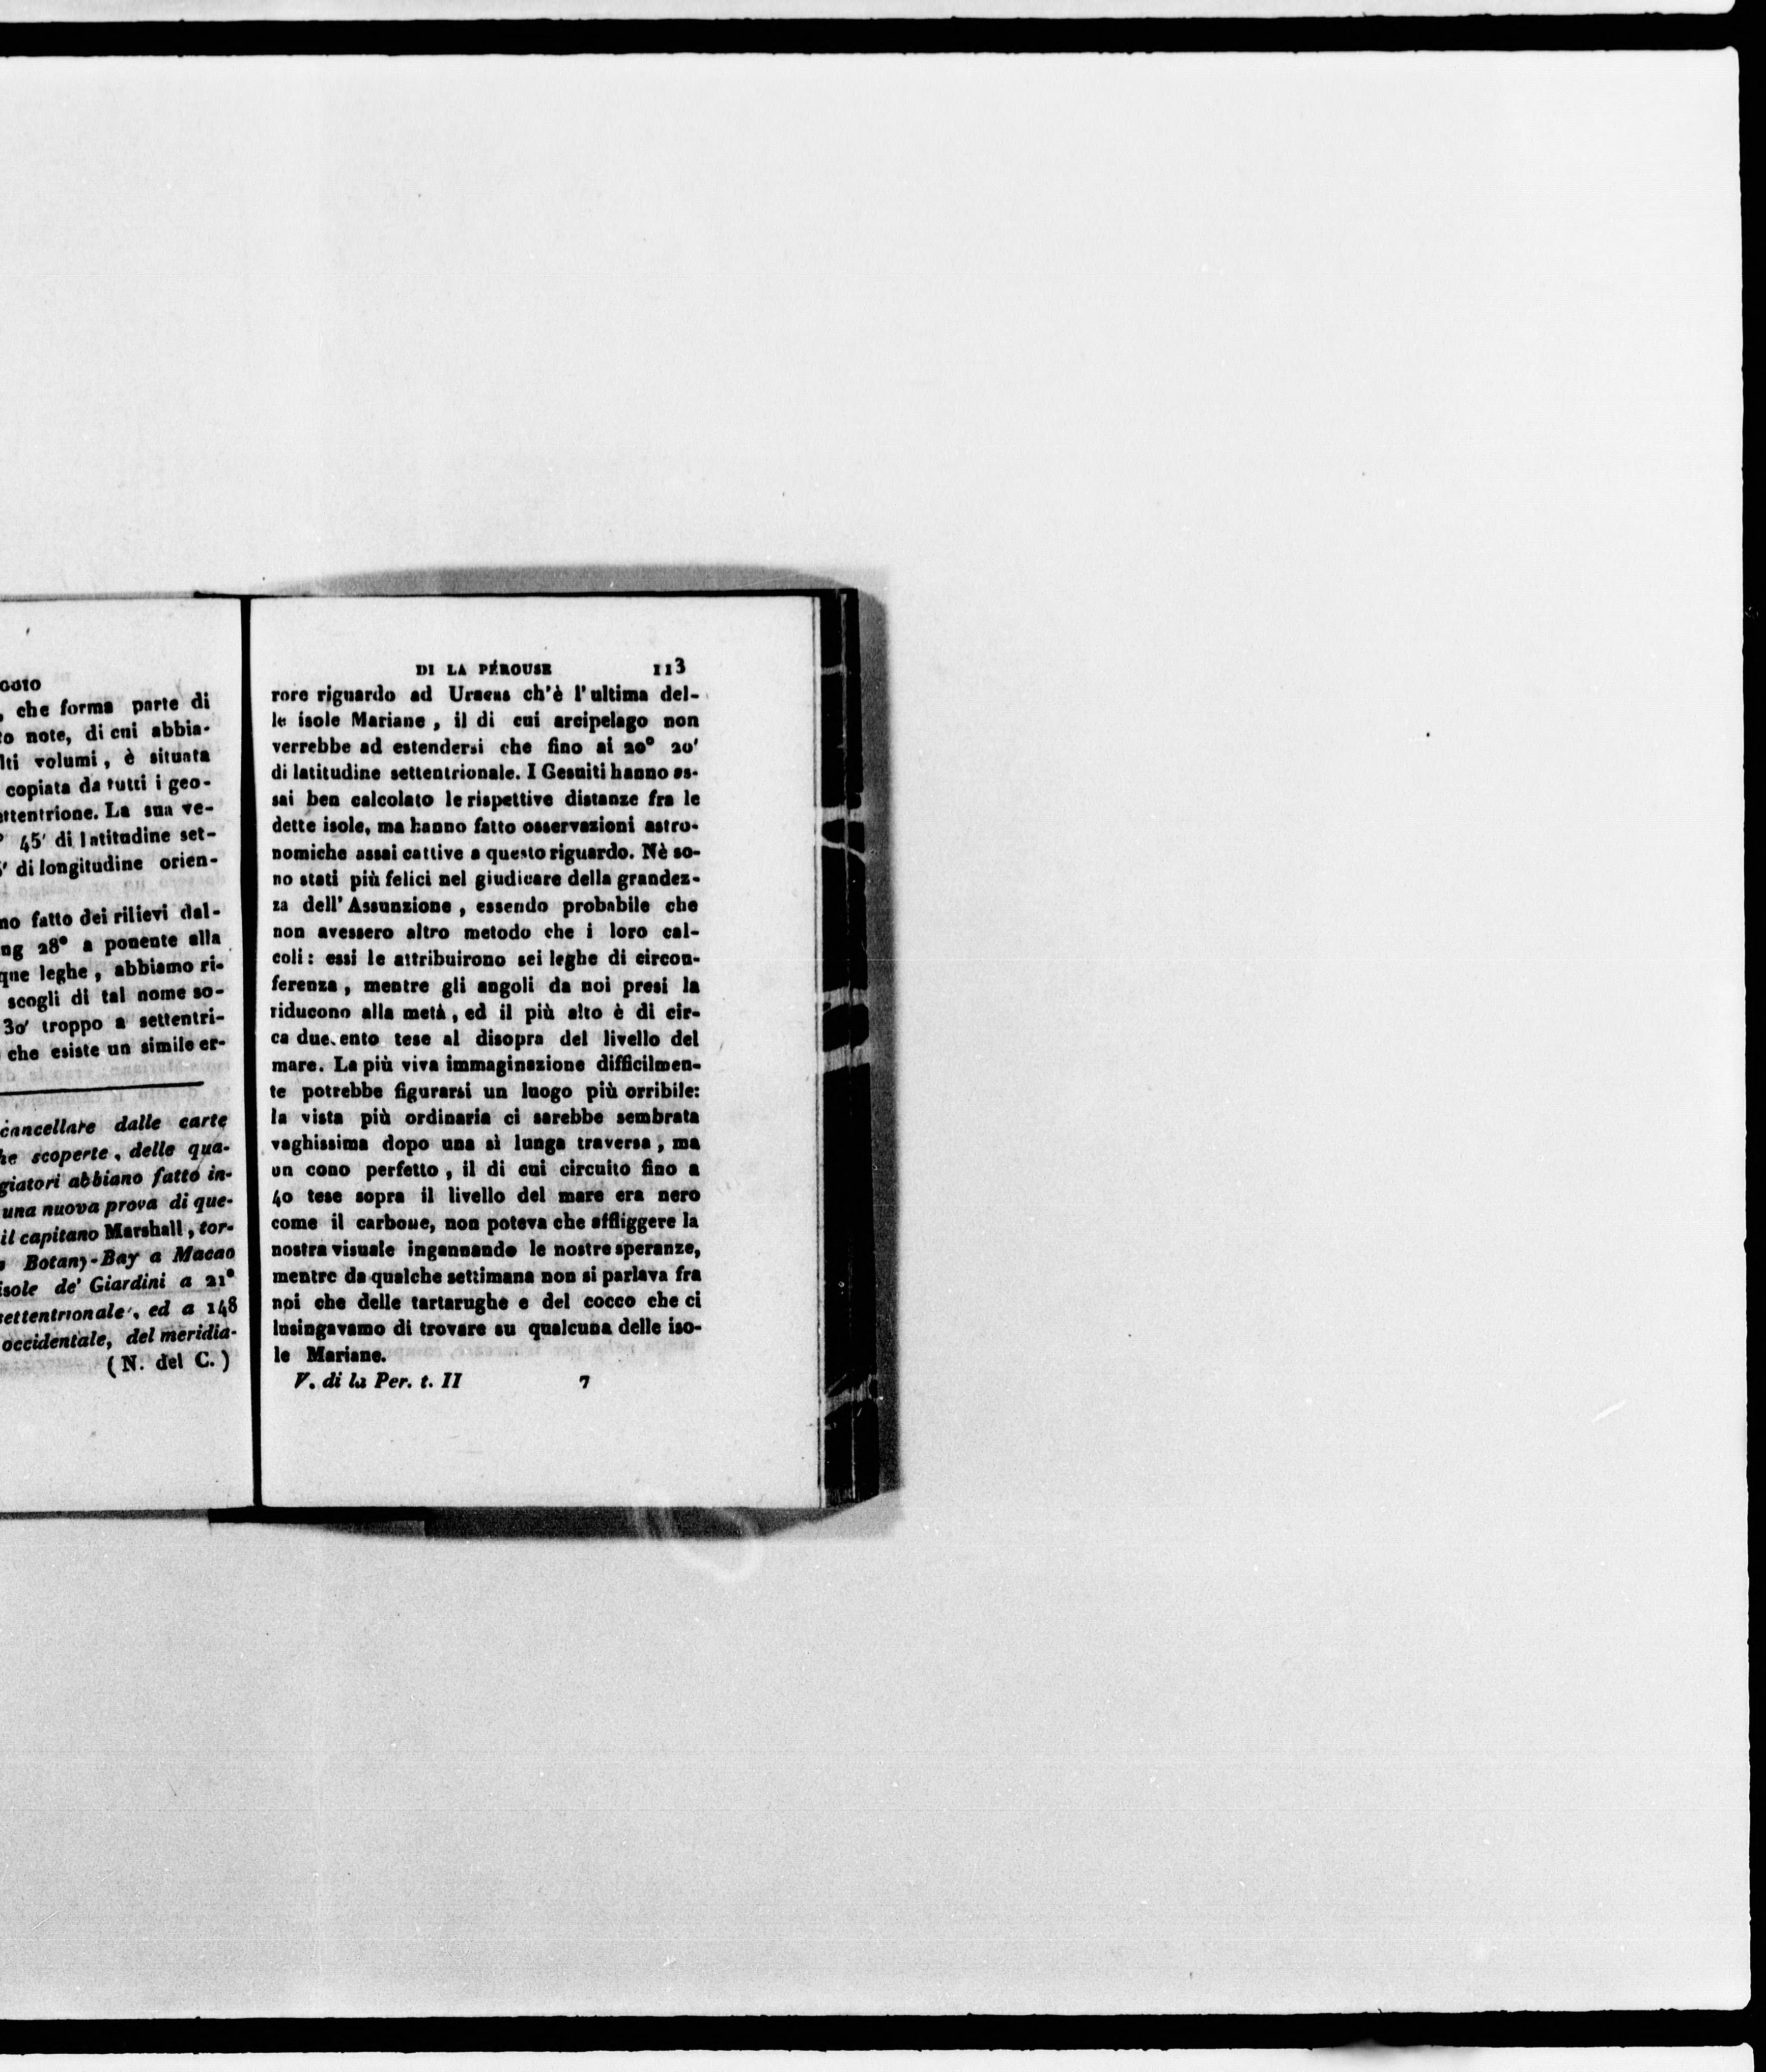 , che forma parte di
note, di cui abbia-
volumi, è situata
copiata da tutti i geo-
La sua ve-
45′ di latitudine set-
di longitudine orien-
fatto dei rilievi dal-
28° a ponente alla
leghe, abbiamo ri-
scogli di tal nome so-
30′ troppo a settentri-
che esiste un simile er-
cancellare dalle carte
scoperte, delle qua-
abbiano fatto in-
una nuova prova di que-
il capitano Marshall, tor-
Botany-Bay a Macao
isole de' Giardini a 21°
settentrionale, ed a 148
occidentale, del meridia-
(N. del C.)
DI LA PÉROUSE 113
rore riguardo ad Uracas ch'è l'ultima del-
le isole Mariane, il di cui arcipelago non
verrebbe ad estendersi che fino ai 20° 20′
di latitudine settentrionale. I Gesuiti hanno as-
sai ben calcolato le rispettive distanze fra le
dette isole, ma hanno fatto osservazioni astro-
nomiche assai cattive a questo riguardo. Nè so-
no stati più felici nel giudicare della grandez-
za dell'Assunzione, essendo probabile che
non avessero altro metodo che i loro cal-
coli: essi le attribuirono sei leghe di circon-
ferenza, mentre gli angoli da noi presi la
riducono alla metà, ed il più alto è di cir-
ca duecento tese al disopra del livello del
mare. La più viva immaginazione difficilmen-
te potrebbe figurarsi un luogo più orribile:
la vista più ordinaria ci sarebbe sembrata
vaghissima dopo una sì lunga traversa, ma
un cono perfetto, il di cui circuito fino a
40 tese sopra il livello del mare era nero
come il carbone, non poteva che affliggere la
nostra visuale ingannando le nostre speranze,
mentre da qualche settimana non si parlava fra
noi che delle tartarughe e del cocco che ci
lusingavamo di trovare su qualcuna delle iso-
le Mariane.
V. di la Per. t. II 7